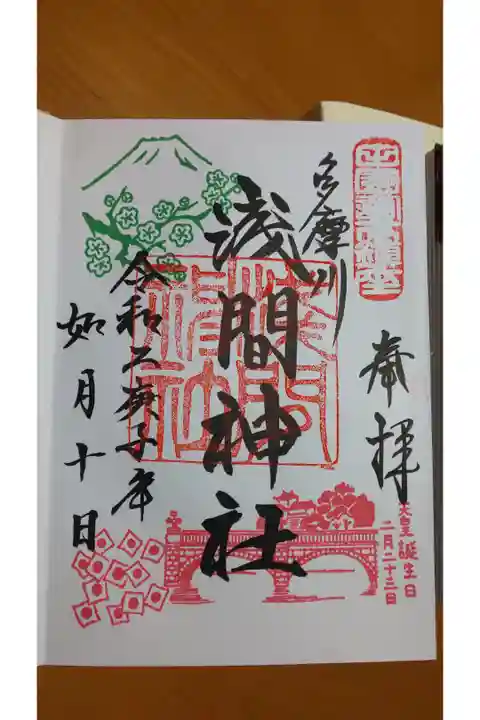 奉拝
天皇誕生日
二月二十三日
多摩川
浅間神社
令和二庚子年
如月十日